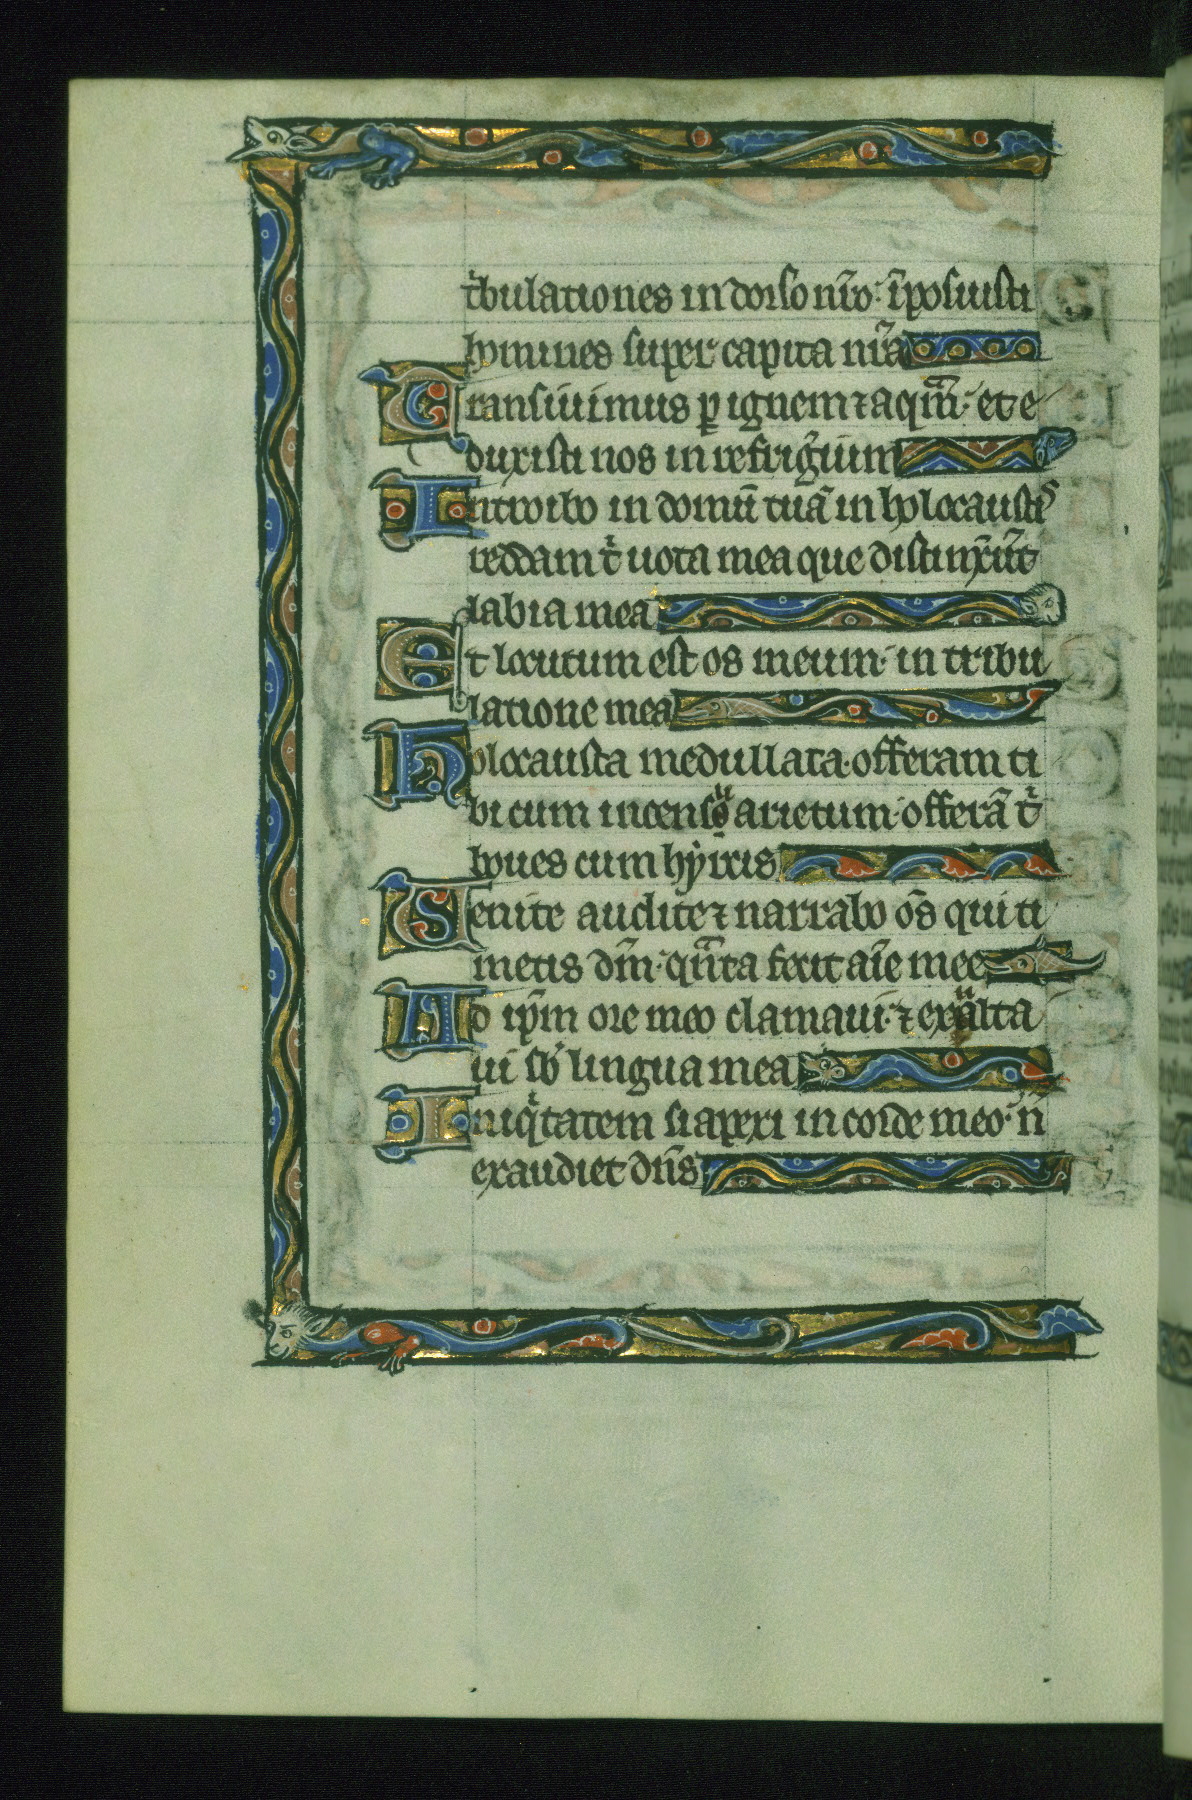 t͛bulationes in dorso nr̄o· īposuisti
homines super capita nr̄a
Transiuimus ꝑ ignem ⁊ aquā· et e
duxisti nos in refrig͛ium
Introibo in domū tuā in holocaustis
reddam t͛ uota mea que distinxer̄t
labia mea
Et locutum est os meum· in tribu
latione mea
Holocausta medullata offeram ti
bi cum incensu arietum· offerā t͛
boues cum hyrcis
Uenite audite ⁊ narrabo om̄s qui ti
metis dm̄· quāta fecit aīe mee
Ad ip̄m ore meo clamaui· ⁊ exalta
ui sb̄ lingua mea
Iniqͥtatem si aspexi in corde meo· n̄
exaudiet dn̄s